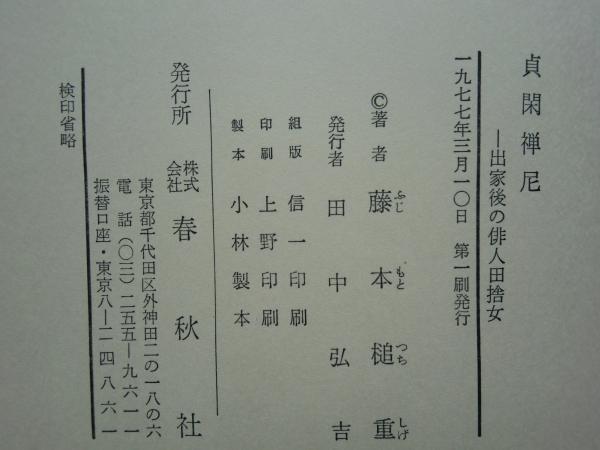 貞閑禅尼
―出家後の俳人田捨女
一九七七年三月一〇日 第一刷発行
©著者 藤本槌重
ふじ もと つち しげ
発行者 田中弘吉
組版 信一印刷
印刷 上野印刷
製本 小林製本
発行所 株式会社 春秋社
東京都千代田区外神田二の一八の六
電話(〇三)二五五―九六一一
振替口座・東京八―二四八六一
検印省略